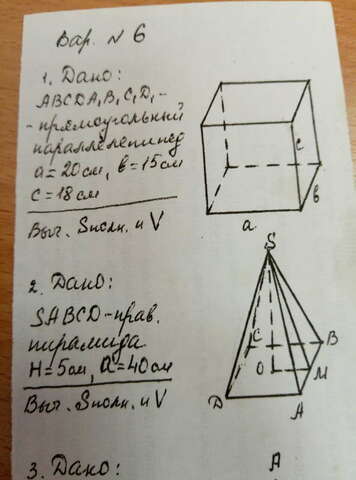 Вар. № 6
1. Дано:
ABCDA₁B₁C₁D₁ -
- прямоугольный
параллелепипед
a = 20см, в = 15см
c = 18см
Выч. Sполн. и V
c
в
a
2. Дано:
SABCD - прав.
пирамида
H = 5см, a = 40см
Выч. Sполн. и V
S
C
B
O
M
D
A
3. Дано:
A